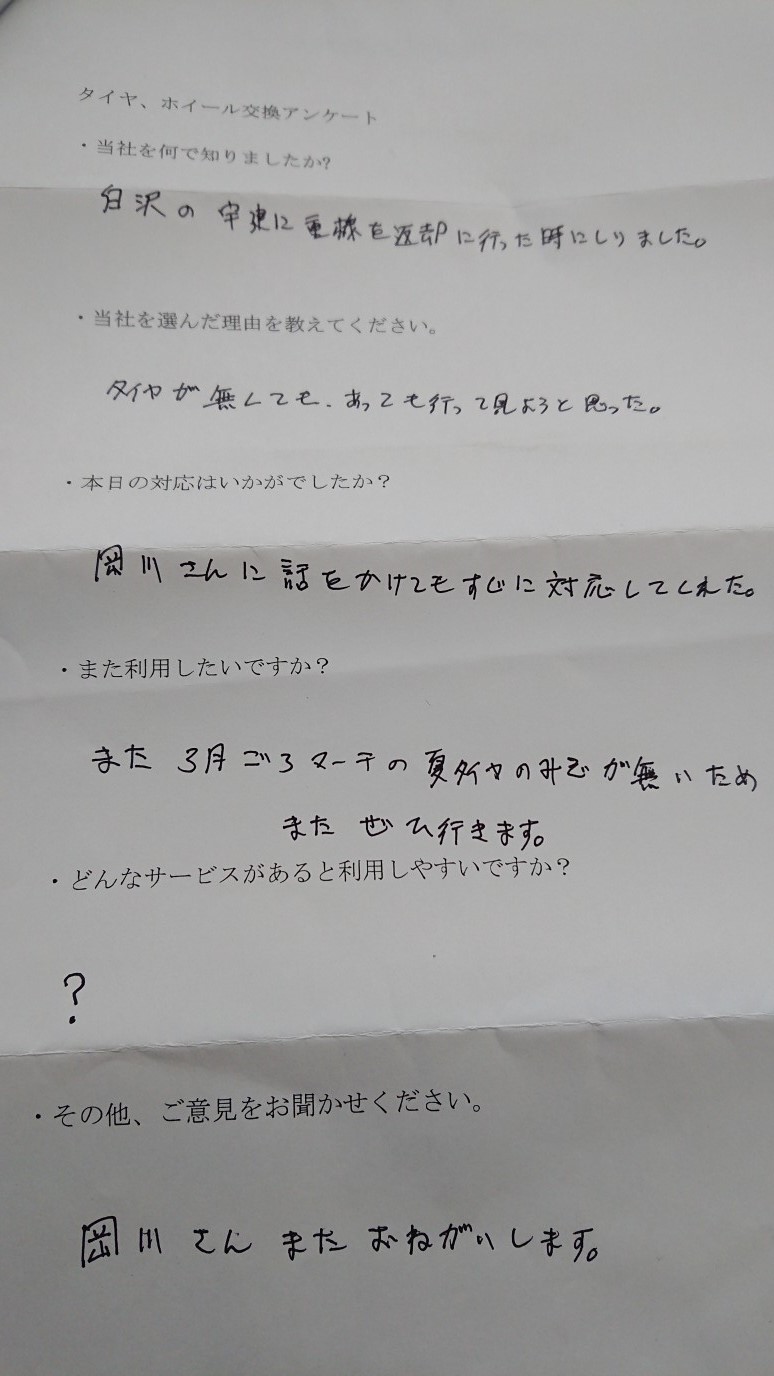 タイヤ、ホイール交換アンケート
・当社を何で知りましたか?
白沢の宇建に重機を返却に行った時にしりました。
・当社を選んだ理由を教えてください。
タイヤが無くても、あっても行って見ようと思った。
・本日の対応はいかがでしたか?
岡川さんに話をかけてもすぐに対応してくれた。
・また利用したいですか?
また3月ごろマーチの夏タイヤのみぞが無いため
またぜひ行きます。
・どんなサービスがあると利用しやすいですか?
?
・その他、ご意見をお聞かせください。
岡川さんまたおねがいします。